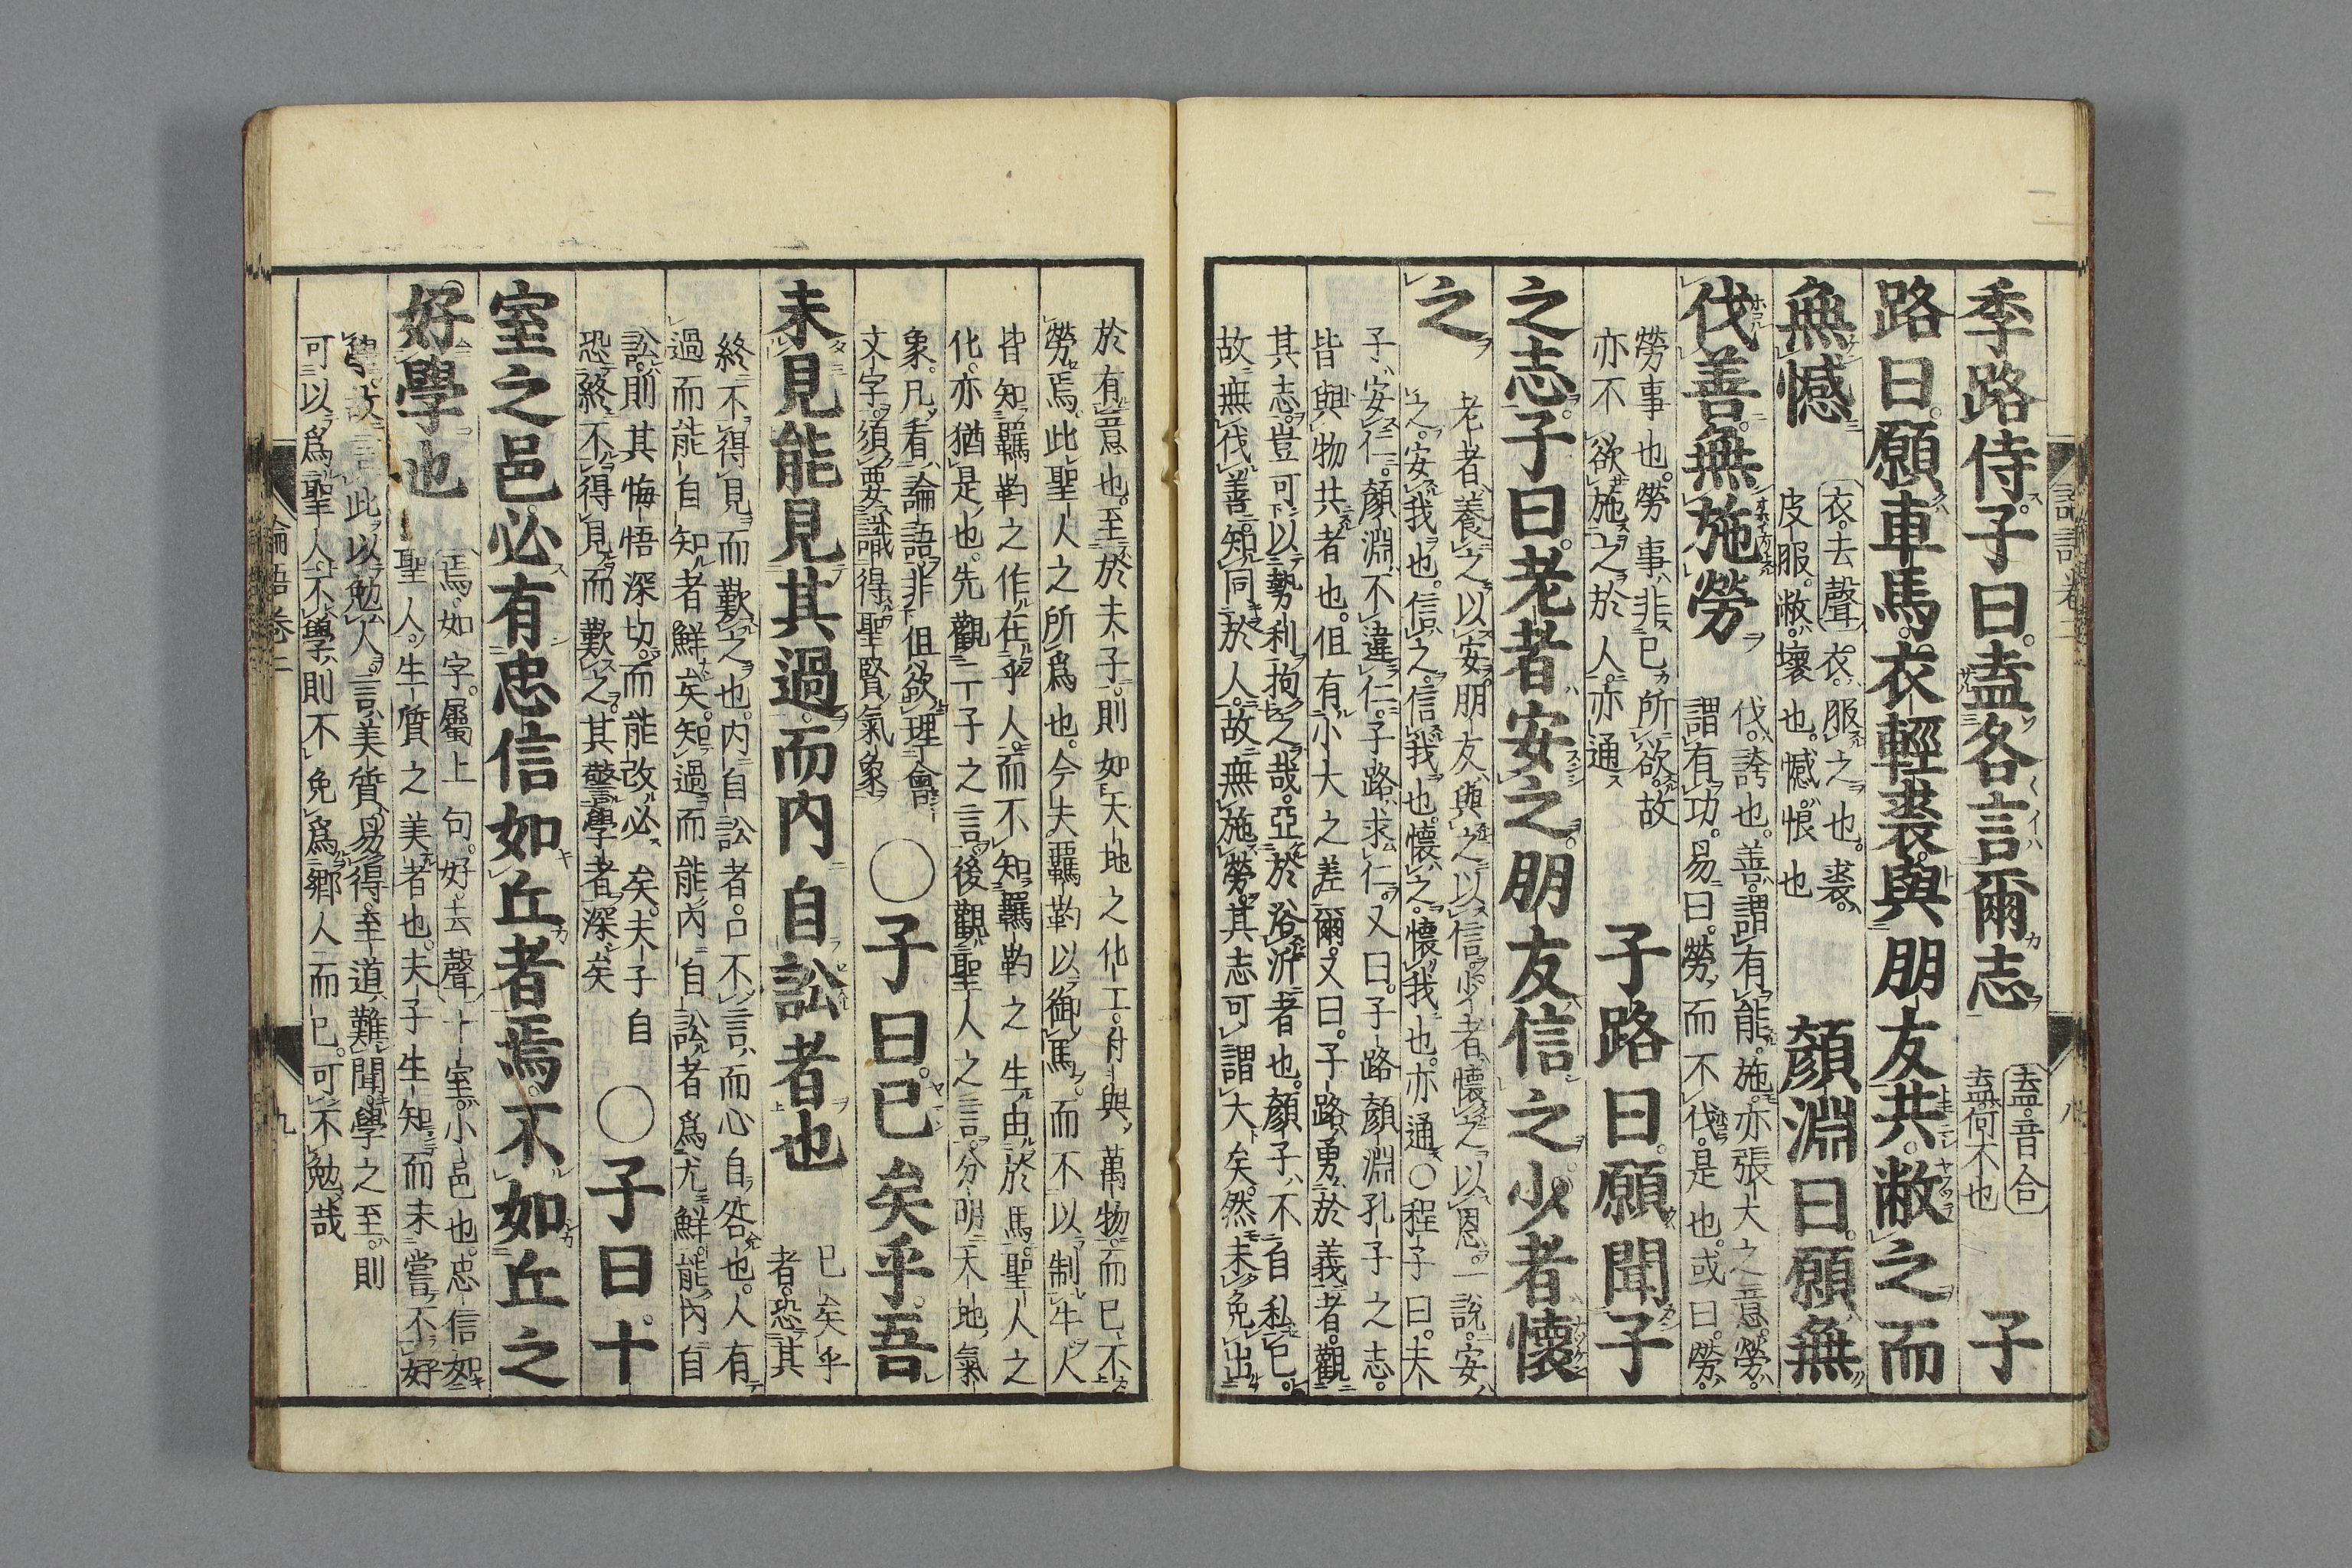 季路侍。子曰。盍各言爾志
盍。音合
盍。何不也
子
路曰。願車馬。衣輕裘。與朋友共。敝之而
無憾
衣。去聲 衣。服之也。裘。
皮服。敝。壞也。憾。恨也
顏淵曰。願無
伐善。無施勞
伐。誇也。善。謂有能。施。亦張大之意。勞。
謂有功。易曰。勞而不伐。是也。或曰。勞。
勞事也。勞事。非已所欲。故
亦不欲施之於人。亦通
子路曰。願聞子
之志。子曰。老者安之。朋友信之。少者懷
之
老者。養之以安。朋友。與之以信。少者。懷之以恩。一說。安
之。安我也。信之。信我也。懷之。懷我也。亦通〇程子曰。夫
子。安仁。顏淵。不違仁。子路。求仁。又曰。子路顏淵孔子之志。
皆與物共者也。但有小大之差爾。又曰。子路。勇於義者。觀
其志。豈可以勢利拘之哉。亞於浴沂者也。顏子。不自私已。
故無伐善。知同於人。故無施勞。其志可謂大矣。然未免出
於有意也。至於夫子。則如天地之化工。付與萬物。而已不
勞焉。此聖人之所爲也。今夫羈靮以御馬。而不以制牛。人
皆知羈靮之作在乎人。而不知羈靮之生由於馬。聖人之
化。亦猶是也。先觀二子之言。後觀聖人之言。分明天地氣
象。凡看論語。非但欲理會
文字。須要識得聖賢氣象
〇子曰。已矣乎。吾
未見能見其過。而内自訟者也
已矣乎
者。恐其
終不得見而歎之也。内自訟者。口不言。而心自咎也。人有
過而能自知者鮮矣。知過而能内自訟者爲尤鮮。能内自
訟。則其悔悟深切。而能改必矣。夫子自
恐終不得見而歎之。其警學者深矣
〇子曰。十
室之邑。必有忠信如丘者焉。不如丘之
好學也
焉。如字。屬上句。好。去聲 十室。小邑也。忠信如
聖人。生質之美者也。夫子生知。而未嘗不好
學。故言此以勉人。言美質。易得。至道。難聞。學之至。則
可以爲聖人。不學。則不免爲鄉人而已。可不勉哉
論語卷二
九